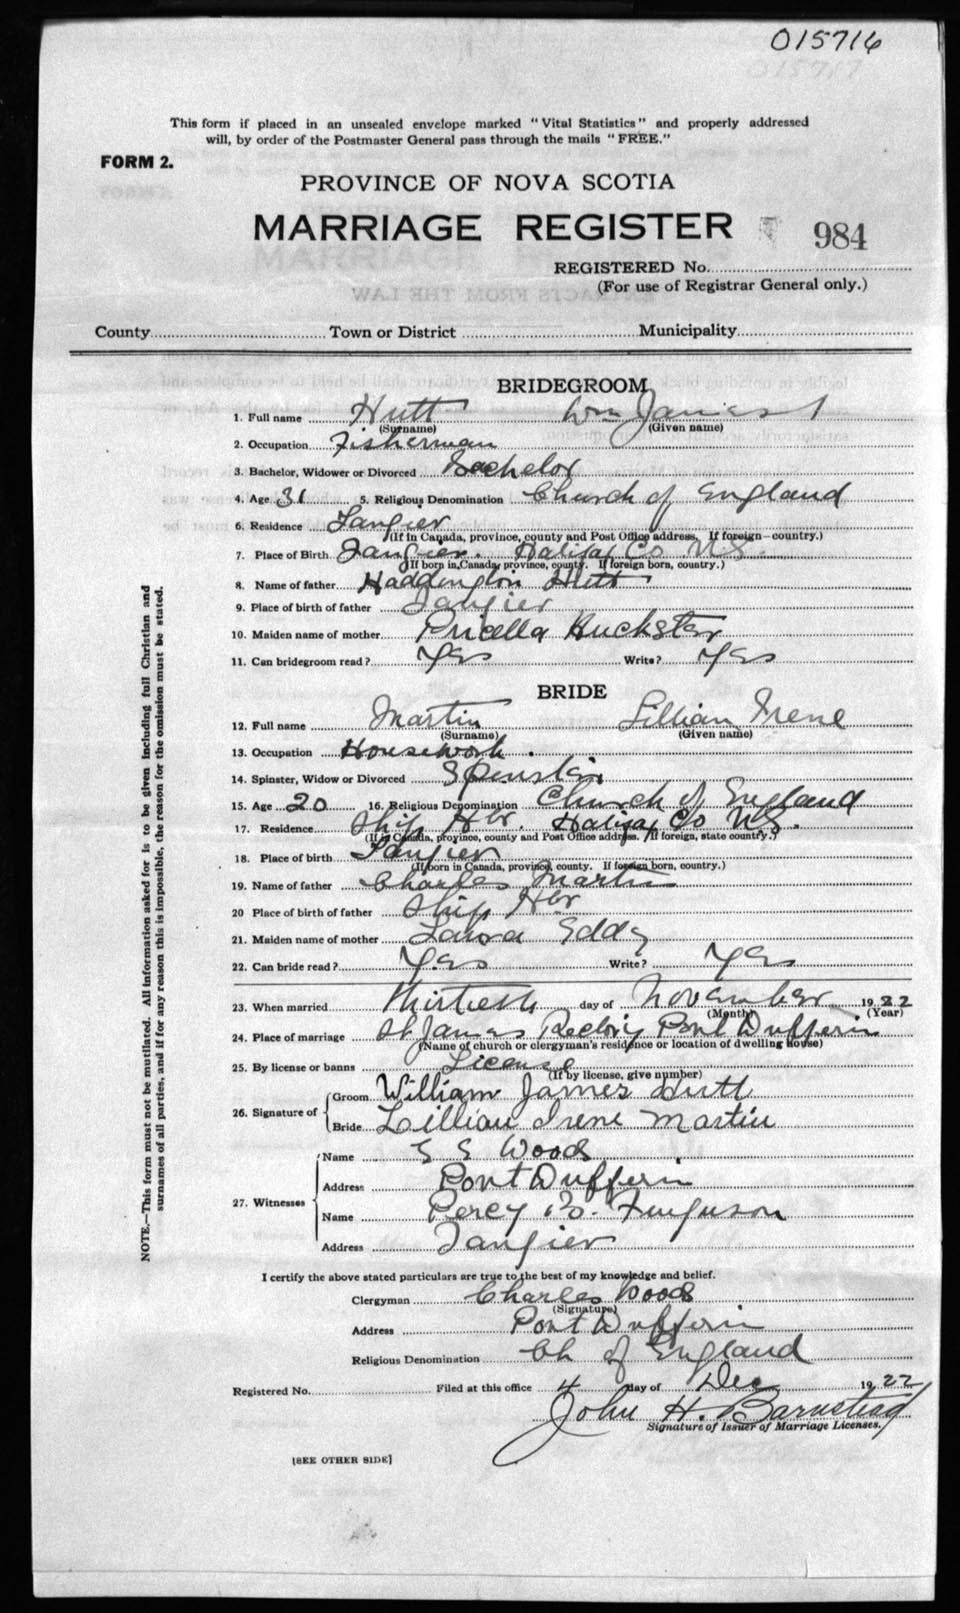 015716
This form if placed in an unsealed envelope marked "Vital Statistics" and properly addressed
will, by order of the Postmaster General pass through the mails "FREE."
FORM 2.
PROVINCE OF NOVA SCOTIA
MARRIAGE REGISTER 984
REGISTERED No.
(For use of Registrar General only.)
County Town or District Municipality
BRIDEGROOM
1. Full name Hutt Wm James
(Surname) (Given name)
2. Occupation Fisherman
3. Bachelor, Widower or Divorced Bachelor
4. Age 31 5. Religious Denomination Church of England
6. Residence Tangier
(If in Canada, province, county and Post Office address. If foreign—country.)
7. Place of Birth Tangier. Halifax Co N.S.
(If born in Canada, province, county. If foreign born, country.)
8. Name of father Haddington Hutt
9. Place of birth of father Tangier
10. Maiden name of mother Pricella Huckster
11. Can bridegroom read? Yes Write? Yes
BRIDE
12. Full name Martin Lillian Irene
(Surname) (Given name)
13. Occupation Housework.
14. Spinster, Widow or Divorced Spinster
15. Age 20 16. Religious Denomination Church of England
17. Residence Ship Hbr. Halifax Co N.S.
(If in Canada, province, county and Post Office address. If foreign, state country.)
18. Place of birth Tangier
(If born in Canada, province, county. If foreign born, country.)
19. Name of father Charles Martin
20 Place of birth of father Ship Hbr
21. Maiden name of mother Laura Eddy
22. Can bride read? Yes Write? Yes
23. When married Thirtieth day of November 1922
(Month) (Year)
24. Place of marriage St James Rectory Port Dufferin
(Name of church or clergyman's residence or location of dwelling house)
25. By license or banns License
(If by license, give number)
26. Signature of Groom William James Hutt
Bride Lillian Irene Martin
27. Witnesses Name E E Woods
Address Port Dufferin
Name Percy B. Ferguson
Address Tangier
I certify the above stated particulars are true to the best of my knowledge and belief.
Clergyman Charles Woods
(Signature)
Address Port Dufferin
Religious Denomination Ch of England
Registered No. Filed at this office 4 day of Dec 1922
John H. Barnstead
Signature of Issuer of Marriage Licenses.
[SEE OTHER SIDE]
NOTE.—This form must not be mutilated. All information asked for is to be given including full Christian and
surnames of all parties, and if for any reason this is impossible, the reason for the omission must be stated.